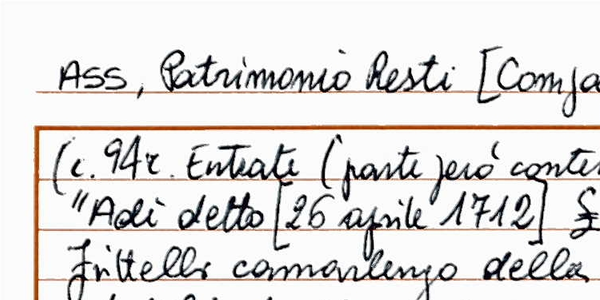 ASS, Patrimonio Resti [Compa
(c. 94r. Entrate (parte però conte
"Adì detto [26 aprile 1712] £
Frittelli camarlengo della